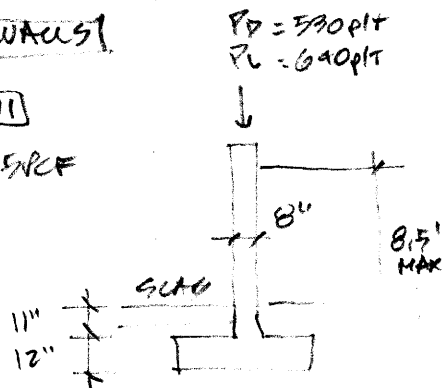 WALLS
PD = 530 plf
PL = 640 plf
5PCF
8"
8.5'
MAX
SLAB
11"
12"